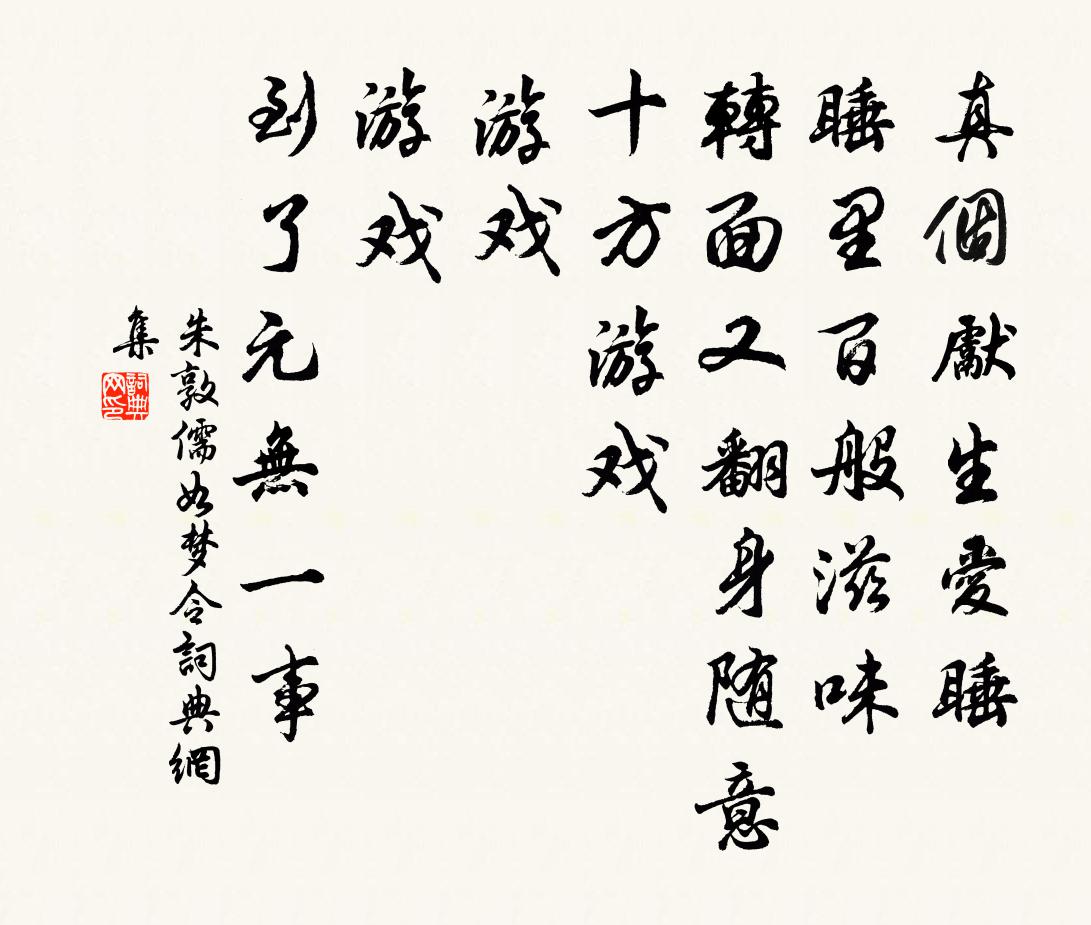 真個獻生愛睡
睡里百般滋味
轉面又翻身随意
十方游戏
游戏
游戏
到了元無一事
朱敦儒如梦令詞典網
集
詞典网印